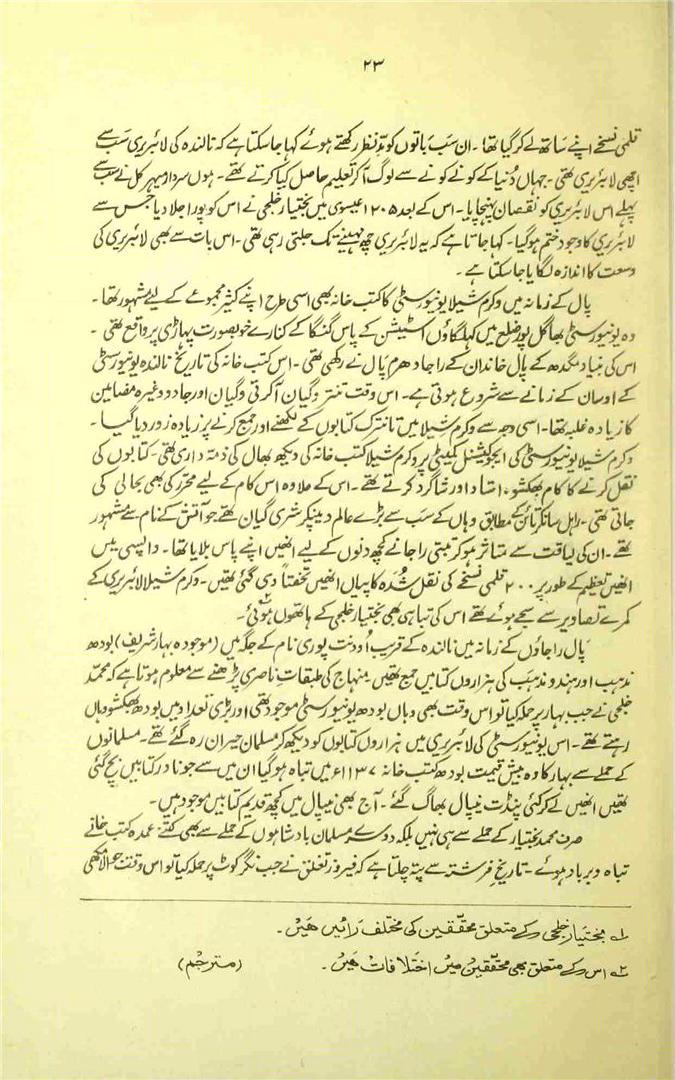 ۲۳
قلمی نسخے اپنے ساتھ لے کر گیا تھا۔ ان سب باتوں کو مدّنظر رکھتے ہوئے کہا جا سکتا ہے کہ نالندہ کی لائبریری سب سے
اچھی لائبریری تھی۔ جہاں دُنیا کے کونے کونے سے لوگ آکر تعلیم حاصل کیا کرتے تھے۔ ہوں سردار میہر کل نے سب سے
پہلے اس لائبریری کو نقصان پہنچایا۔ اس کے بعد ۱۲۰۵ عیسوی میں بختیار خلجی نے اس کو پورا جلا دیا جس سے
لائبریری کا وجود ختم ہوگیا۔ کہا جاتا ہے کہ یہ لائبریری چھ مہینے تک جلتی رہی تھی۔ اس بات سے بھی لائبریری کی
وسعت کا اندازہ لگایا جا سکتا ہے۔
پال کے زمانہ میں وکرم شیلا یونیورسٹی کا کتب خانہ بھی اسی طرح اپنے کثیر مجموعے کے لیے مشہور تھا۔
وہ یونیورسٹی بھاگل پور ضلع میں کہلگاؤں اسٹیشن کے پاس گنگا کے کنارے خوبصورت پہاڑی پر واقع تھی۔
اس کی بنیاد مگدھ کے پال خاندان کے راجا دھرم پال نے رکھی تھی۔ اس کتب خانہ کی تاریخ نالندہ یونیورسٹی
کے اوسان کے زمانے سے شروع ہوتی ہے۔ اس وقت تنتر وگیان آکرتی وگیان اور جادو وغیرہ مضامین
کا زیادہ غلبہ تھا۔ اسی وجہ سے وکرم شیلا میں تانترک کتابوں کے لکھنے اور جمع کرنے پر زیادہ زور دیا گیا۔
وکرم شیلا یونیورسٹی کی ایجوکیشنل کمیٹی پر وکرم شیلا کتب خانہ کی دیکھ بھال کی ذمّہ داری تھی۔ کتابوں کی
نقل کرنے کا کام بھکشو، استاد اور شاگرد کرتے تھے۔ اس کے علاوہ اس کام کے لیے محرّر کی بھی بحالی کی
جاتی تھی۔ راہل سانکرتائن کے مطابق وہاں کے سب سے بڑے عالم دیپنکر شری گیان تھے جو آتش کے نام سے مشہور
تھے۔ ان کی لیاقت سے متاثر ہو کر تبتی راجا نے کچھ دنوں کے لیے انھیں اپنے پاس بلایا تھا۔ واپسی میں
انھیں تعظیم کے طور پر ۲۰۰ قلمی نسخے کی نقل شُدہ کاپیاں انھیں تحفتاً دی گئی تھیں۔ وکرم شیلا لائبریری کے
کمرے تصاویر سے سجے ہوئے تھے اس کی تباہی بھی بختیار خلجی کے ہاتھوں ہوئی۲۔
پال راجاؤں کے زمانہ میں نالندہ کے قریب اُودنت پوری نام کے جگہ میں (موجودہ بہار شریف) بودھ
مذہب اور ہندو مذہب کی ہزاروں کتابیں جمع تھیں منہاج کی طبقات ناصری پڑھنے سے معلوم ہوتا ہے کہ محمّد
خلجی نے جب بہار پر حملہ کیا تو اس وقت بھی وہاں بودھ یونیورسٹی موجود تھی اور بڑی تعداد میں بودھ بھکشو وہاں
رہتے تھے۔ اس یونیورسٹی کی لائبریری میں ہزاروں کتابوں کو دیکھ کر مسلمان حیران رہ گئے تھے۔ مسلمانوں
کے حملے سے بہار کا وہ بیش قیمت بودھ کتب خانہ ۱۱۳۷ء میں تباہ ہوگیا ان میں سے جو نادر کتابیں بچ گئی
تھیں انھیں لے کر کئی پنڈت نیپال بھاگ گئے۔ آج بھی نیپال میں کچھ قدیم کتابیں موجود ہیں۔
صرف محمد بختیار کے حملے سے ہی نہیں بلکہ دوسرے مسلمان بادشاہوں کے حملے سے بھی کتنے عمدہ کتب خانے
تباہ و برباد ہوئے۔ تاریخ فرشتہ سے پتہ چلتا ہے کہ فیروز تغلق نے جب نگرکوٹ پر حملہ کیا تو اس وقت جوالامکھی
۱ بختیار خلجی کے متعلق محقّقین کی مختلف رائیں ہیں۔
۲ اس کے متعلق بھی محقّقین میں اختلافات ہیں۔ (مترجم)